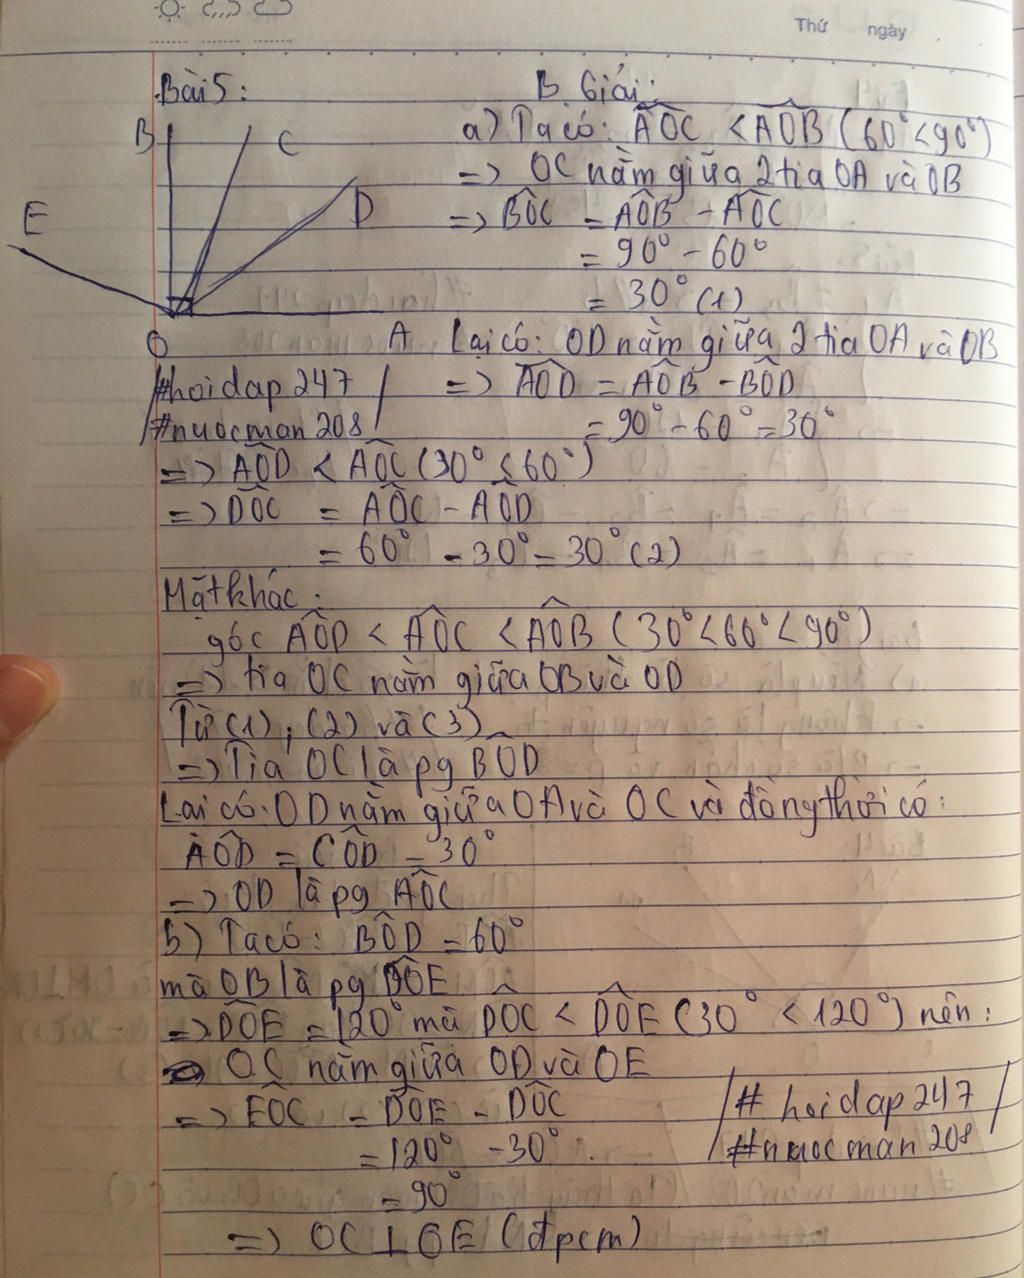 Thứ ngày
Bài 5: B Giải:
B C D E O A
a) Ta có: AÔC < AÔB (60° < 90°)
=> OC nằm giữa 2 tia OA và OB
=> BÔC = AÔB - AÔC
= 90° - 60°
= 30° (1)
Lại có: OD nằm giữa 2 tia OA và OB
#hoidap247
#nuocman208
=> AÔD = AÔB - BÔD
= 90° - 60° = 30°
=> AÔD < AÔC (30° < 60°)
=> DÔC = AÔC - AÔD
= 60° - 30° = 30° (2)
Mặt khác:
góc AÔD < AÔC < AÔB (30° < 60° < 90°)
=> tia OC nằm giữa OB và OD
Từ (1), (2) và (3)
=> Tia OC là pg BÔD
Lại có: OD nằm giữa OA và OC và đồng thời có:
AÔD = CÔD = 30°
=> OD là pg AÔC
b) Ta có: BÔD = 60°
mà OB là pg DÔE
=> DÔE = 120° mà DÔC < DÔE (30° < 120°) nên:
OC nằm giữa OD và OE
=> EÔC = DÔE - DÔC
= 120° - 30°
= 90°
=> OC ⊥ OE (đpcm)
#hoidap247
#nuocman208